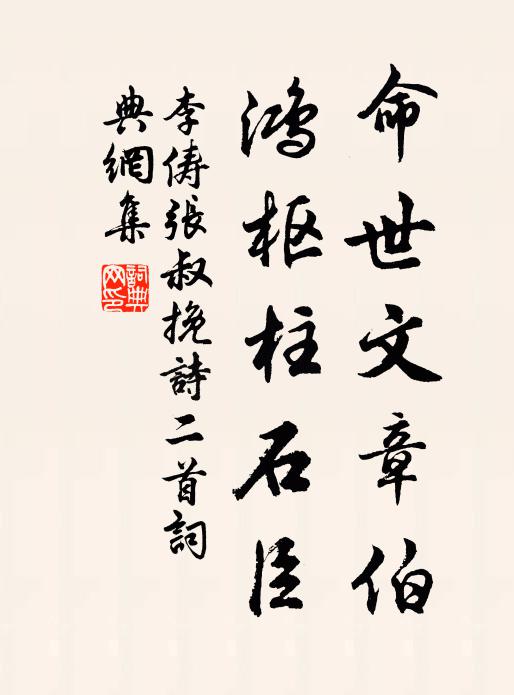 命世文章伯
鸿枢柱石臣
李俦張叔挽詩二首詞
典網集
詞典网印